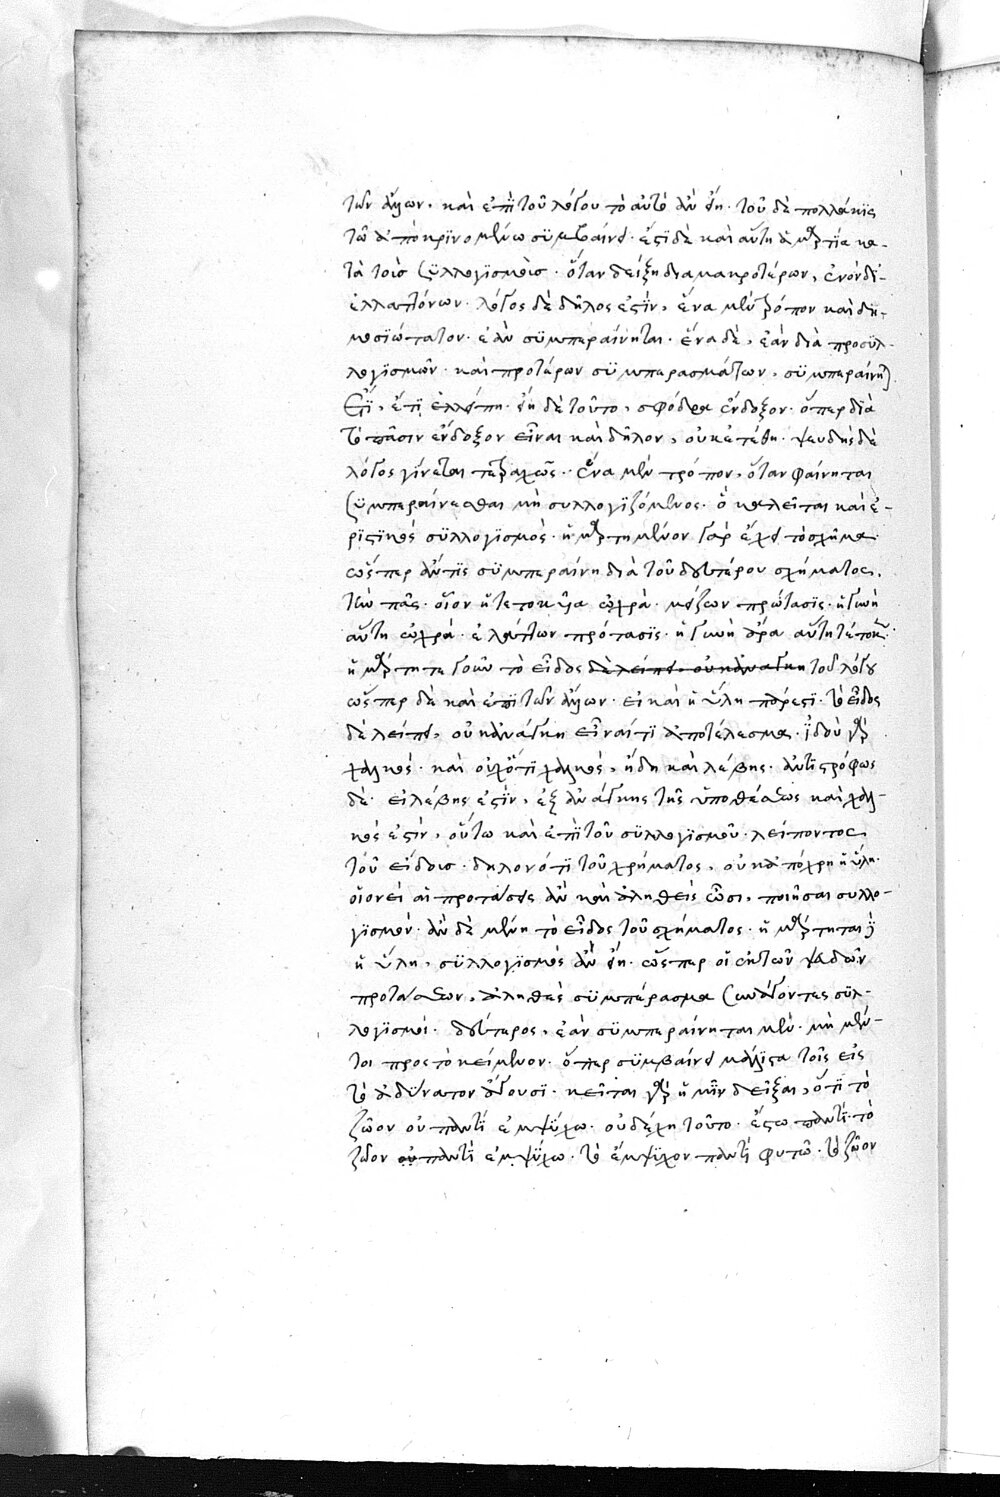 τῶν ἄλλων. καὶ ἐπὶ τοῦ λόγου τὸ αὐτὸ ἂν εἴη. τοῦ δὲ πολλάκις
τῶ ἀποκρινομένω συμβαίνει. ἔστι δὲ καὶ αὕτη ἁμαρτία κα-
τὰ τοὺς συλλογισμούς. ὅταν δείξη διὰ μακροτέρων, ἐνὸν δι'
ἐλλαττόνων. λόγος δὲ δῆλος ἐστὶν, ἕνα μὲν τρόπον καὶ δη-
μοσιώτατον. ἐὰν συμπεραίνηται. ἕνα δὲ, ἐὰν διὰ προσυλ-
λογισμῶν. καὶ προτέρων συμπερασμάτων, συμπεραίνηται
Ἔτι, ἔτι ἐλλείπη. εἴη δὲ τοῦτο, σφόδρα ἔνδοξον. ὅπερ διὰ
τὸ πᾶσιν ἔνδοξον εἶναι καὶ δῆλον, οὐκ ἐτέθη. ψευδὴς δὲ
λόγος γίνεται τετραχῶς. ἕνα μὲν τρόπον, ὅταν φαίνηται
συμπεραίνεσθαι μὴ συλλογιζόμενος. ὃ καλεῖται καὶ ἐ-
ριστικὸς συλλογισμός. ἡμαρτημένον γὰρ ἔχει τὸ σχῆμα.
ὥσπερ ἄν τις συμπεραίνη διὰ τοῦ δευτέρου σχήματος,
τὸ πᾶς. οἷον ἡ τετοκυῖα ὠχρά. μείζων πρώτασις. ἡ γυνὴ
αὕτη ὠχρά. ἐλάττων πρότασις. ἡ γυνὴ ἄρα αὕτη τέτοκεν.
ἡμάρτηται γοῦν τὸ εἶδος δὲ λείπει, οὐκ ἀνάγκη τοῦ λόγου
ὥσπερ δὲ καὶ ἐπὶ τῶν ἄλλων. εἰ καὶ ἡ ὕλη πάρεστι. τὸ εἶδος
δὲ λείπει, οὐκ ἀνάγκη εἶναί τι ἀποτέλεσμα. ἰδοὺ γὰρ
χαλκός. καὶ οὐχ ὅτι χαλκός, ἤδη καὶ λέβης. ἀντιστρόφως
δὲ. εἰ λέβης ἐστὶν, ἐξ ἀνάγκης τῆς ὑποθέσεως καὶ χαλ-
κός ἐστιν, οὕτω καὶ ἐπὶ τοῦ συλλογισμοῦ. λείποντος,
τοῦ εἴδους. δηλονότι τοῦ χρήματος, οὐκ ἀπόχρη ἡ ὕλη.
οἱονεὶ αἱ προτάσεις ἂν καὶ ἀληθεῖς ὦσι, ποιῆσαι συλλο-
γισμόν. ἂν δὲ μένη τὸ εἶδος τοῦ σχήματος. ἡμάρτηται δὲ
ἡ ὕλη, συλλογισμὸς ἂν εἴη. ὥσπερ οἱ ἐκ τῶν ψευδῶν
προτάσεων, ἀληθὲς συμπέρασμα συνάγοντες συλ-
λογισμοί. δεύτερος, ἐὰν συμπεραίνηται μὲν. μὴ μέν-
τοι πρὸς τὸ κείμενον. ὅπερ συμβαίνει μάλιστα τοῖς εἰς
τὸ ἀδύνατον ἄγουσι. κεῖται γὰρ ἡμῖν δεῖξαι, ὅτι τὸ
ζῶον οὐ παντὶ ἐμψύχω. οὐ δέχη τοῦτο. ἔστω παντί. τὸ
ζῶον οὐ παντὶ ἐμψύχω. τὸ ἔμψυχον παντὶ φυτῶ. τὸ ζῶον